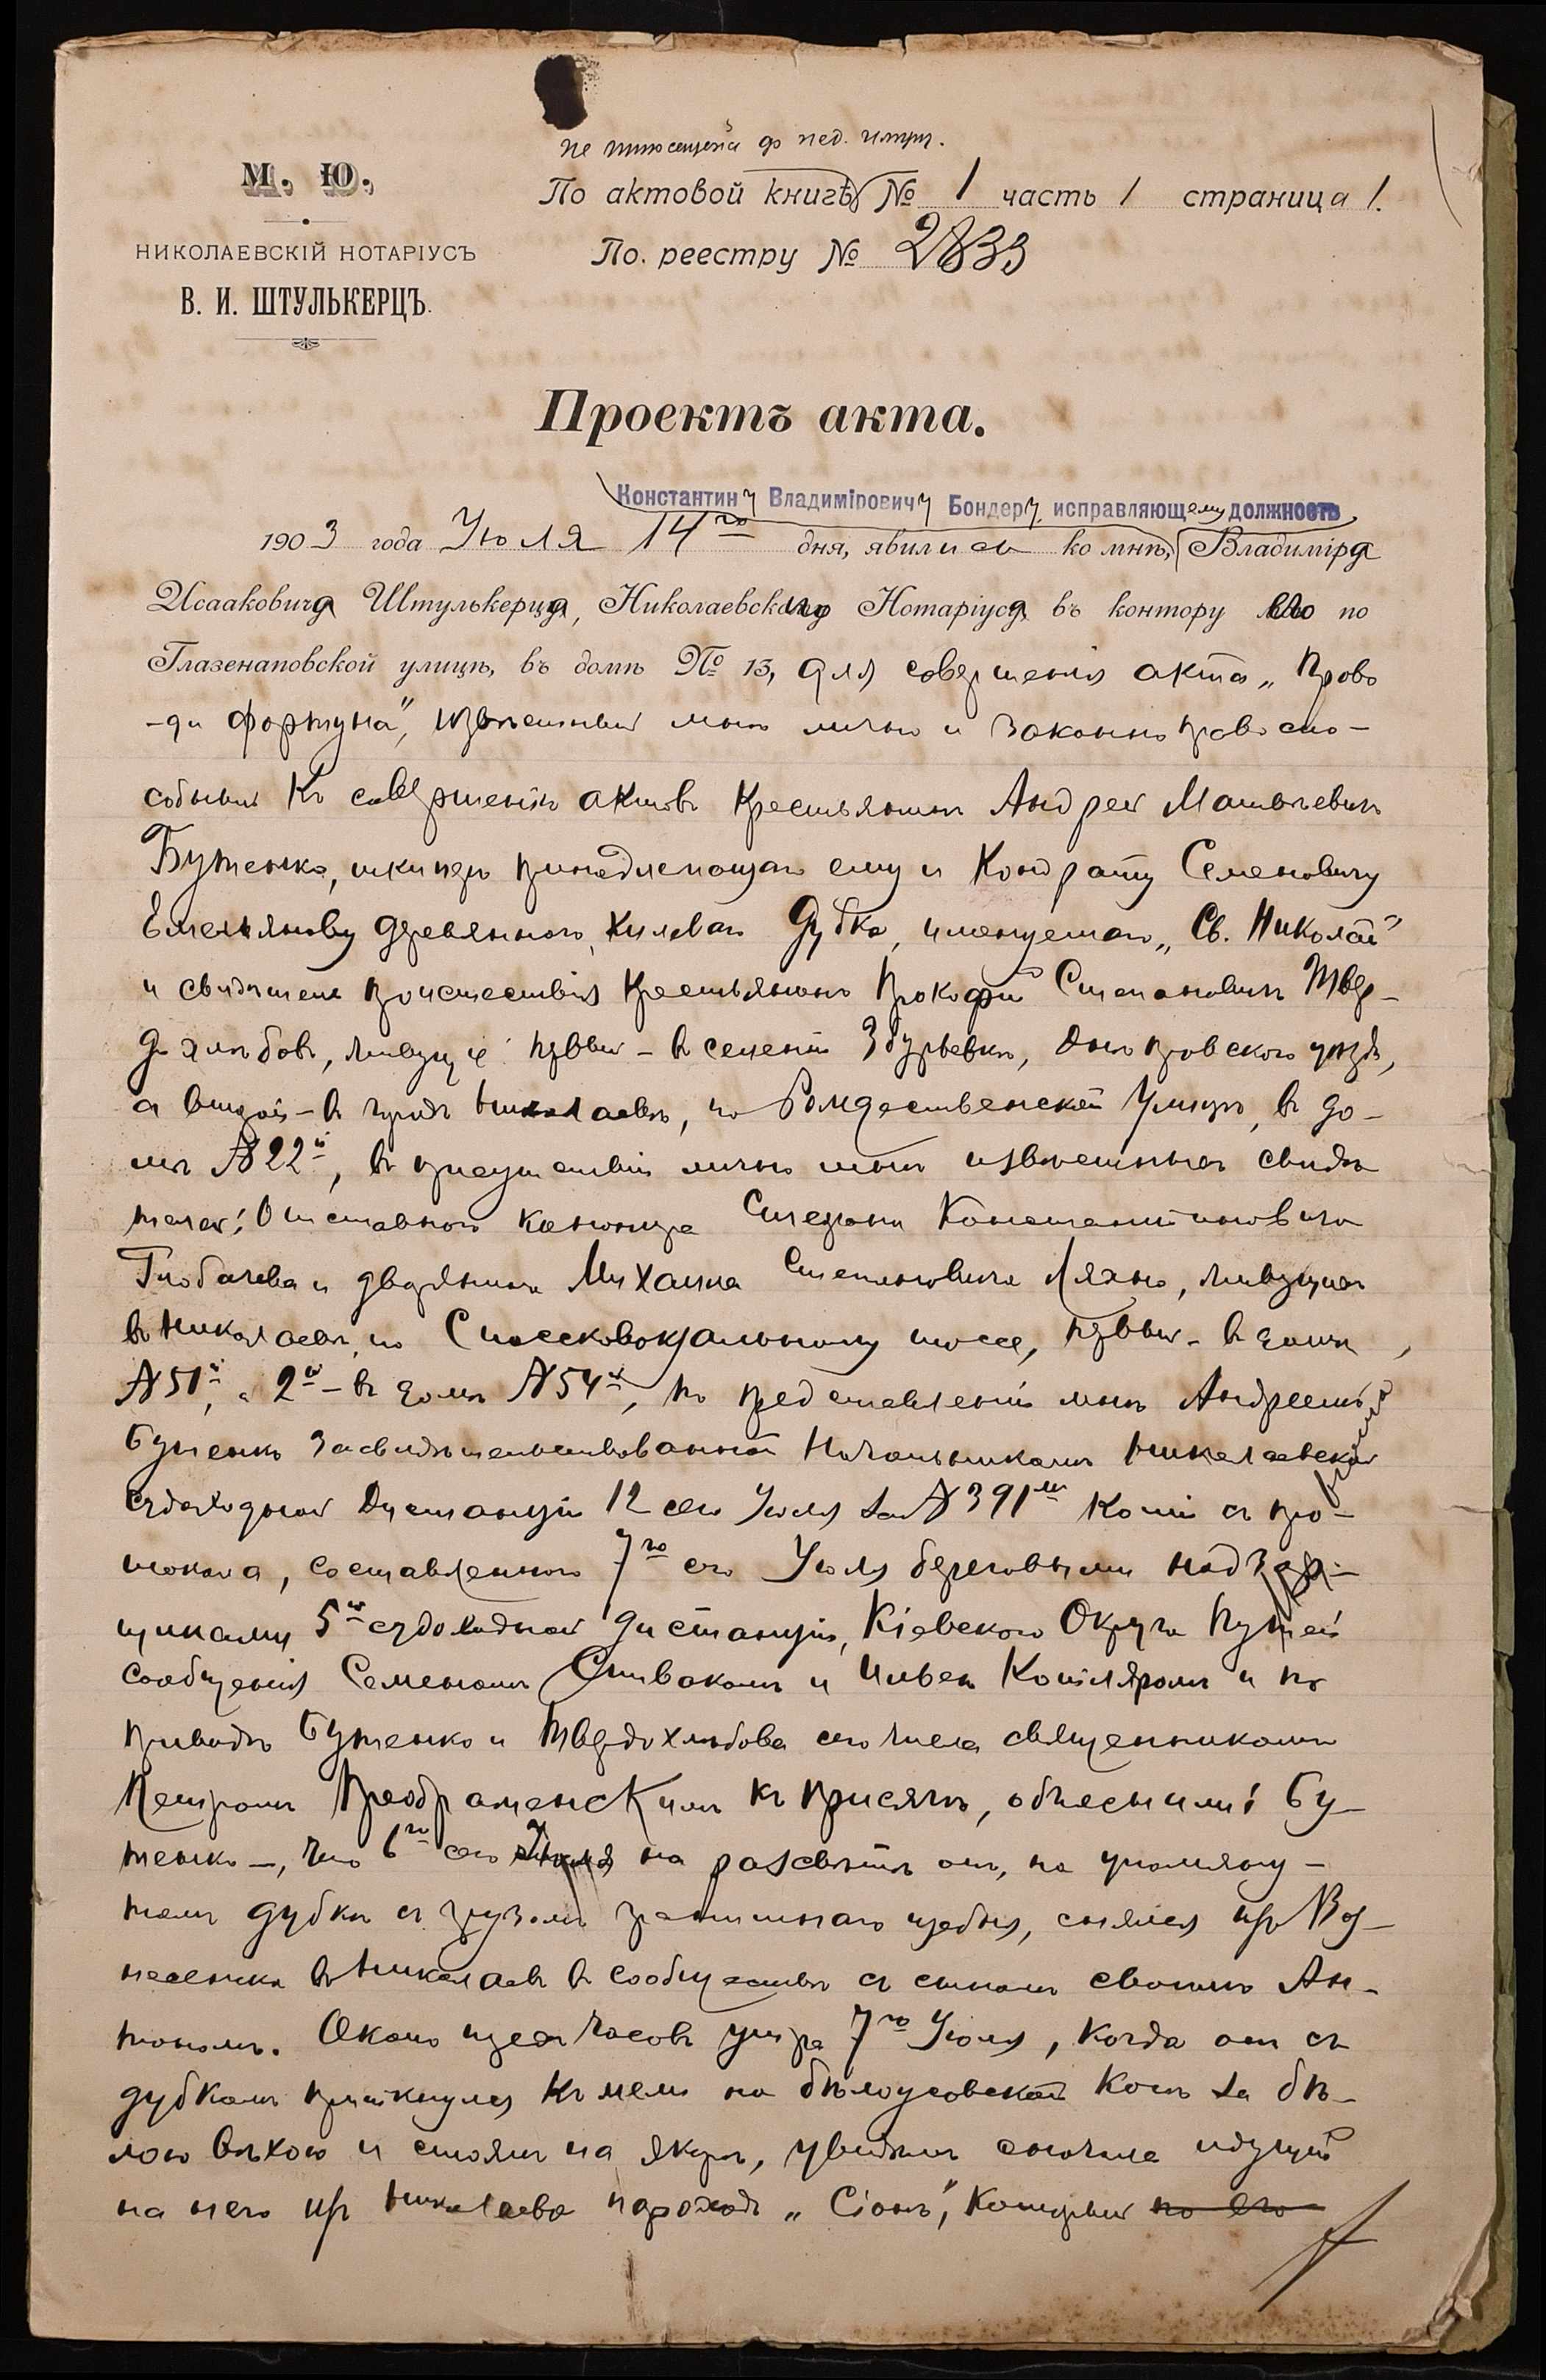 М. Ю.
По актовой книгѣ № 1 часть 1 страница 1.
НИКОЛАЕВСКІЙ НОТАРІУСЪ
По. реестру № 2833
В. И. ШТУЛЬКЕРЦЪ.
Проектъ акта.
Константину Владиміровичу Бондеру, исправляющему должность
1903 года Іюля 14го дня, явились ко мнѣ, Владиміра
Исааковича Штулькерца, Николаевскаго Нотаріуса, въ контору его по
Глазенаповской улицѣ, въ домѣ № 13, для совершенія акта „Прово
-ди фортуна", извѣстный мнѣ лично и законно правоспо-
собный къ совершенію актовъ крестьянинъ Андрей Матвѣевичъ
Бутенко, шкиперъ принадлежащаго ему и Кондрату Семеновичу
Емельянову деревяннаго, килеваго дубка, именуемаго „Св. Николай"
и свидѣтель происшествія крестьянинъ Прокофій Степановичъ Твер-
дохлѣбовъ, живущіе: первый - въ селеніи Збурьевкѣ, Днѣпровскаго уѣзда,
а второй - въ городѣ Николаевѣ, по Рождественской улицѣ, въ до-
мѣ № 22й, въ присутствіи лично мнѣ извѣстныхъ свидѣ
телей: Отставного канонира Стефана Константиновича
Глобачева и дворянина Михаила Степановича Ляхно, живущихъ
въ Николаевѣ, по Спассковокзальному шоссе, первый - въ домѣ
№ 51й, а 2й - въ домѣ № 54й, по представленіи мнѣ Андреемъ
Бутенко засвидѣтельствованной Начальникомъ Николаевской
судоходной Дистанціи 12 сего Іюля за № 391мъ копіи съ про-
токола, составленнаго 7го сего Іюля береговыми надзир-
щиками 5й судоходной дистанціи, Кіевскаго Округа Путей
сообщенія Семеномъ Спивакомъ и Ильей Котляромъ и по
приводѣ Бутенко и Твердохлѣбова сего числа священникомъ
Петромъ Преображенскимъ къ присягѣ, объяснили: Бу-
тенко -, что 6го сего Іюля на разсвѣтѣ онъ, на упомяну-
томъ дубкѣ съ грузомъ гранитнаго щебня, снялся изъ Воз-
несенска въ Николаевъ въ сообществѣ съ сыномъ своимъ Ан-
тономъ. Около часовъ утра 7го Іюля, когда онъ съ
дубкомъ приткнулся къ мели на бѣлоусовской косѣ за бѣ-
лою вѣхою и стоялъ на якорѣ, увидѣлъ сначала идущій
на него изъ Николаева пароходъ „Сіонъ", который по его